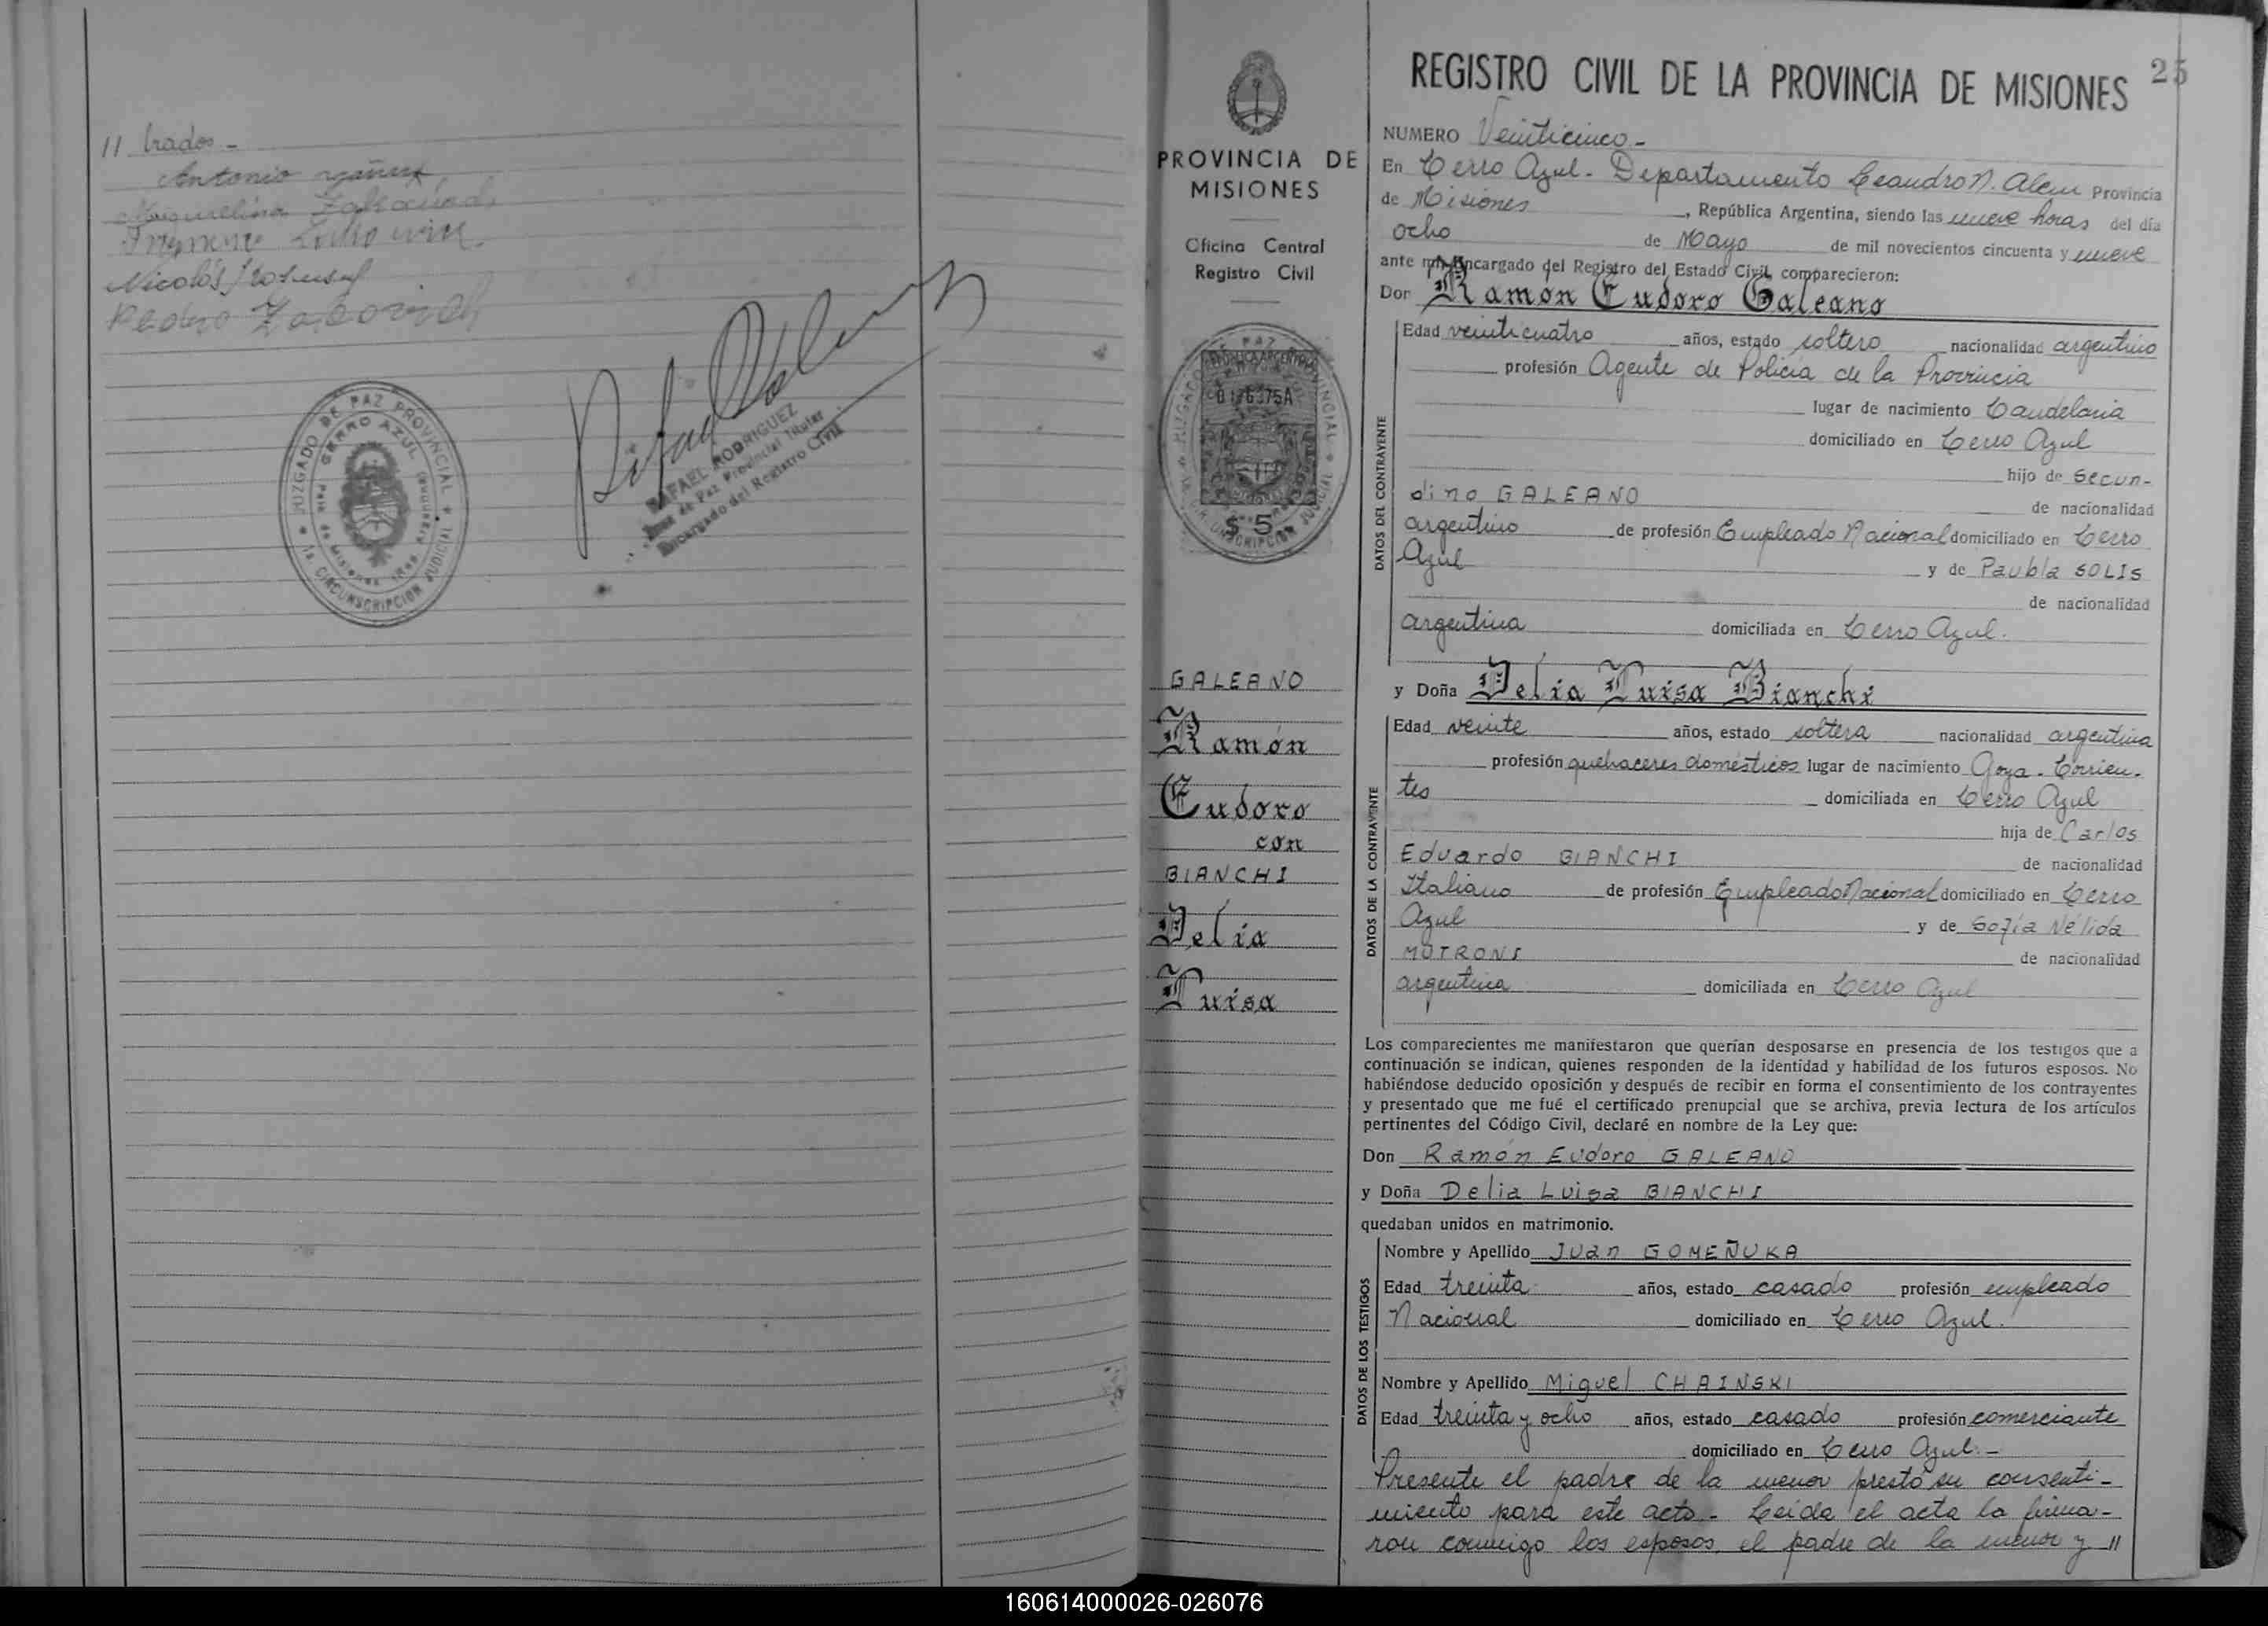 // trados -
Antonio
Nicolás
Pedro
JUZGADO DE PAZ PROVINCIAL
CERRO AZUL
1a CIRCUNSCRIPCION JUDICIAL
RAFAEL RODRIGUEZ
Juez de Paz Provincial Titular
Encargado del Registro Civil
PROVINCIA DE
MISIONES
Oficina Central
Registro Civil
$ 5
GALEANO
Ramón
Eudoro
con
BIANCHI
Delia
Luisa
REGISTRO CIVIL DE LA PROVINCIA DE MISIONES 25
NUMERO Veinticinco -
En Cerro Azul - Departamento Leandro N. Alem Provincia
de Misiones, República Argentina, siendo las nueve horas del día
ocho de Mayo de mil novecientos cincuenta y nueve
ante mi, Encargado del Registro del Estado Civil, comparecieron:
Don Ramón Eudoro Galeano
DATOS DEL CONTRAYENTE
Edad veinticuatro años, estado soltero nacionalidad argentino
profesión Agente de Policía de la Provincia
lugar de nacimiento Candelaria
domiciliado en Cerro Azul
hijo de Secun-
dino GALEANO de nacionalidad
argentino de profesión Empleado Nacional domiciliado en Cerro
Azul y de Paubla SOLIS
de nacionalidad
argentina domiciliada en Cerro Azul.
y Doña Delia Luisa Bianchi
DATOS DE LA CONTRAYENTE
Edad veinte años, estado soltera nacionalidad argentina
profesión quehaceres domésticos lugar de nacimiento Goya - Corrien-
tes domiciliada en Cerro Azul
hija de Carlos
Eduardo BIANCHI de nacionalidad
Italiano de profesión Empleado Nacional domiciliado en Cerro
Azul y de Sofía Nélida
MOTRONI de nacionalidad
argentina domiciliada en Cerro Azul
Los comparecientes me manifestaron que querían desposarse en presencia de los testigos que a
continuación se indican, quienes responden de la identidad y habilidad de los futuros esposos. No
habiéndose deducido oposición y después de recibir en forma el consentimiento de los contrayentes
y presentado que me fué el certificado prenupcial que se archiva, previa lectura de los artículos
pertinentes del Código Civil, declaré en nombre de la Ley que:
Don Ramón Eudoro GALEANO
y Doña Delia Luisa BIANCHI
quedaban unidos en matrimonio.
DATOS DE LOS TESTIGOS
Nombre y Apellido Juan GOMEÑUKA
Edad treinta años, estado casado profesión empleado
Nacional domiciliado en Cerro Azul.
Nombre y Apellido Miguel CHAINSKI
Edad treinta y ocho años, estado casado profesión comerciante
domiciliado en Cerro Azul. -
Presente el padre de la menor prestó su consenti-
miento para este acto.- Leída el acta la firma-
ron conmigo los esposos, el padre de la menor y //
160614000026-026076